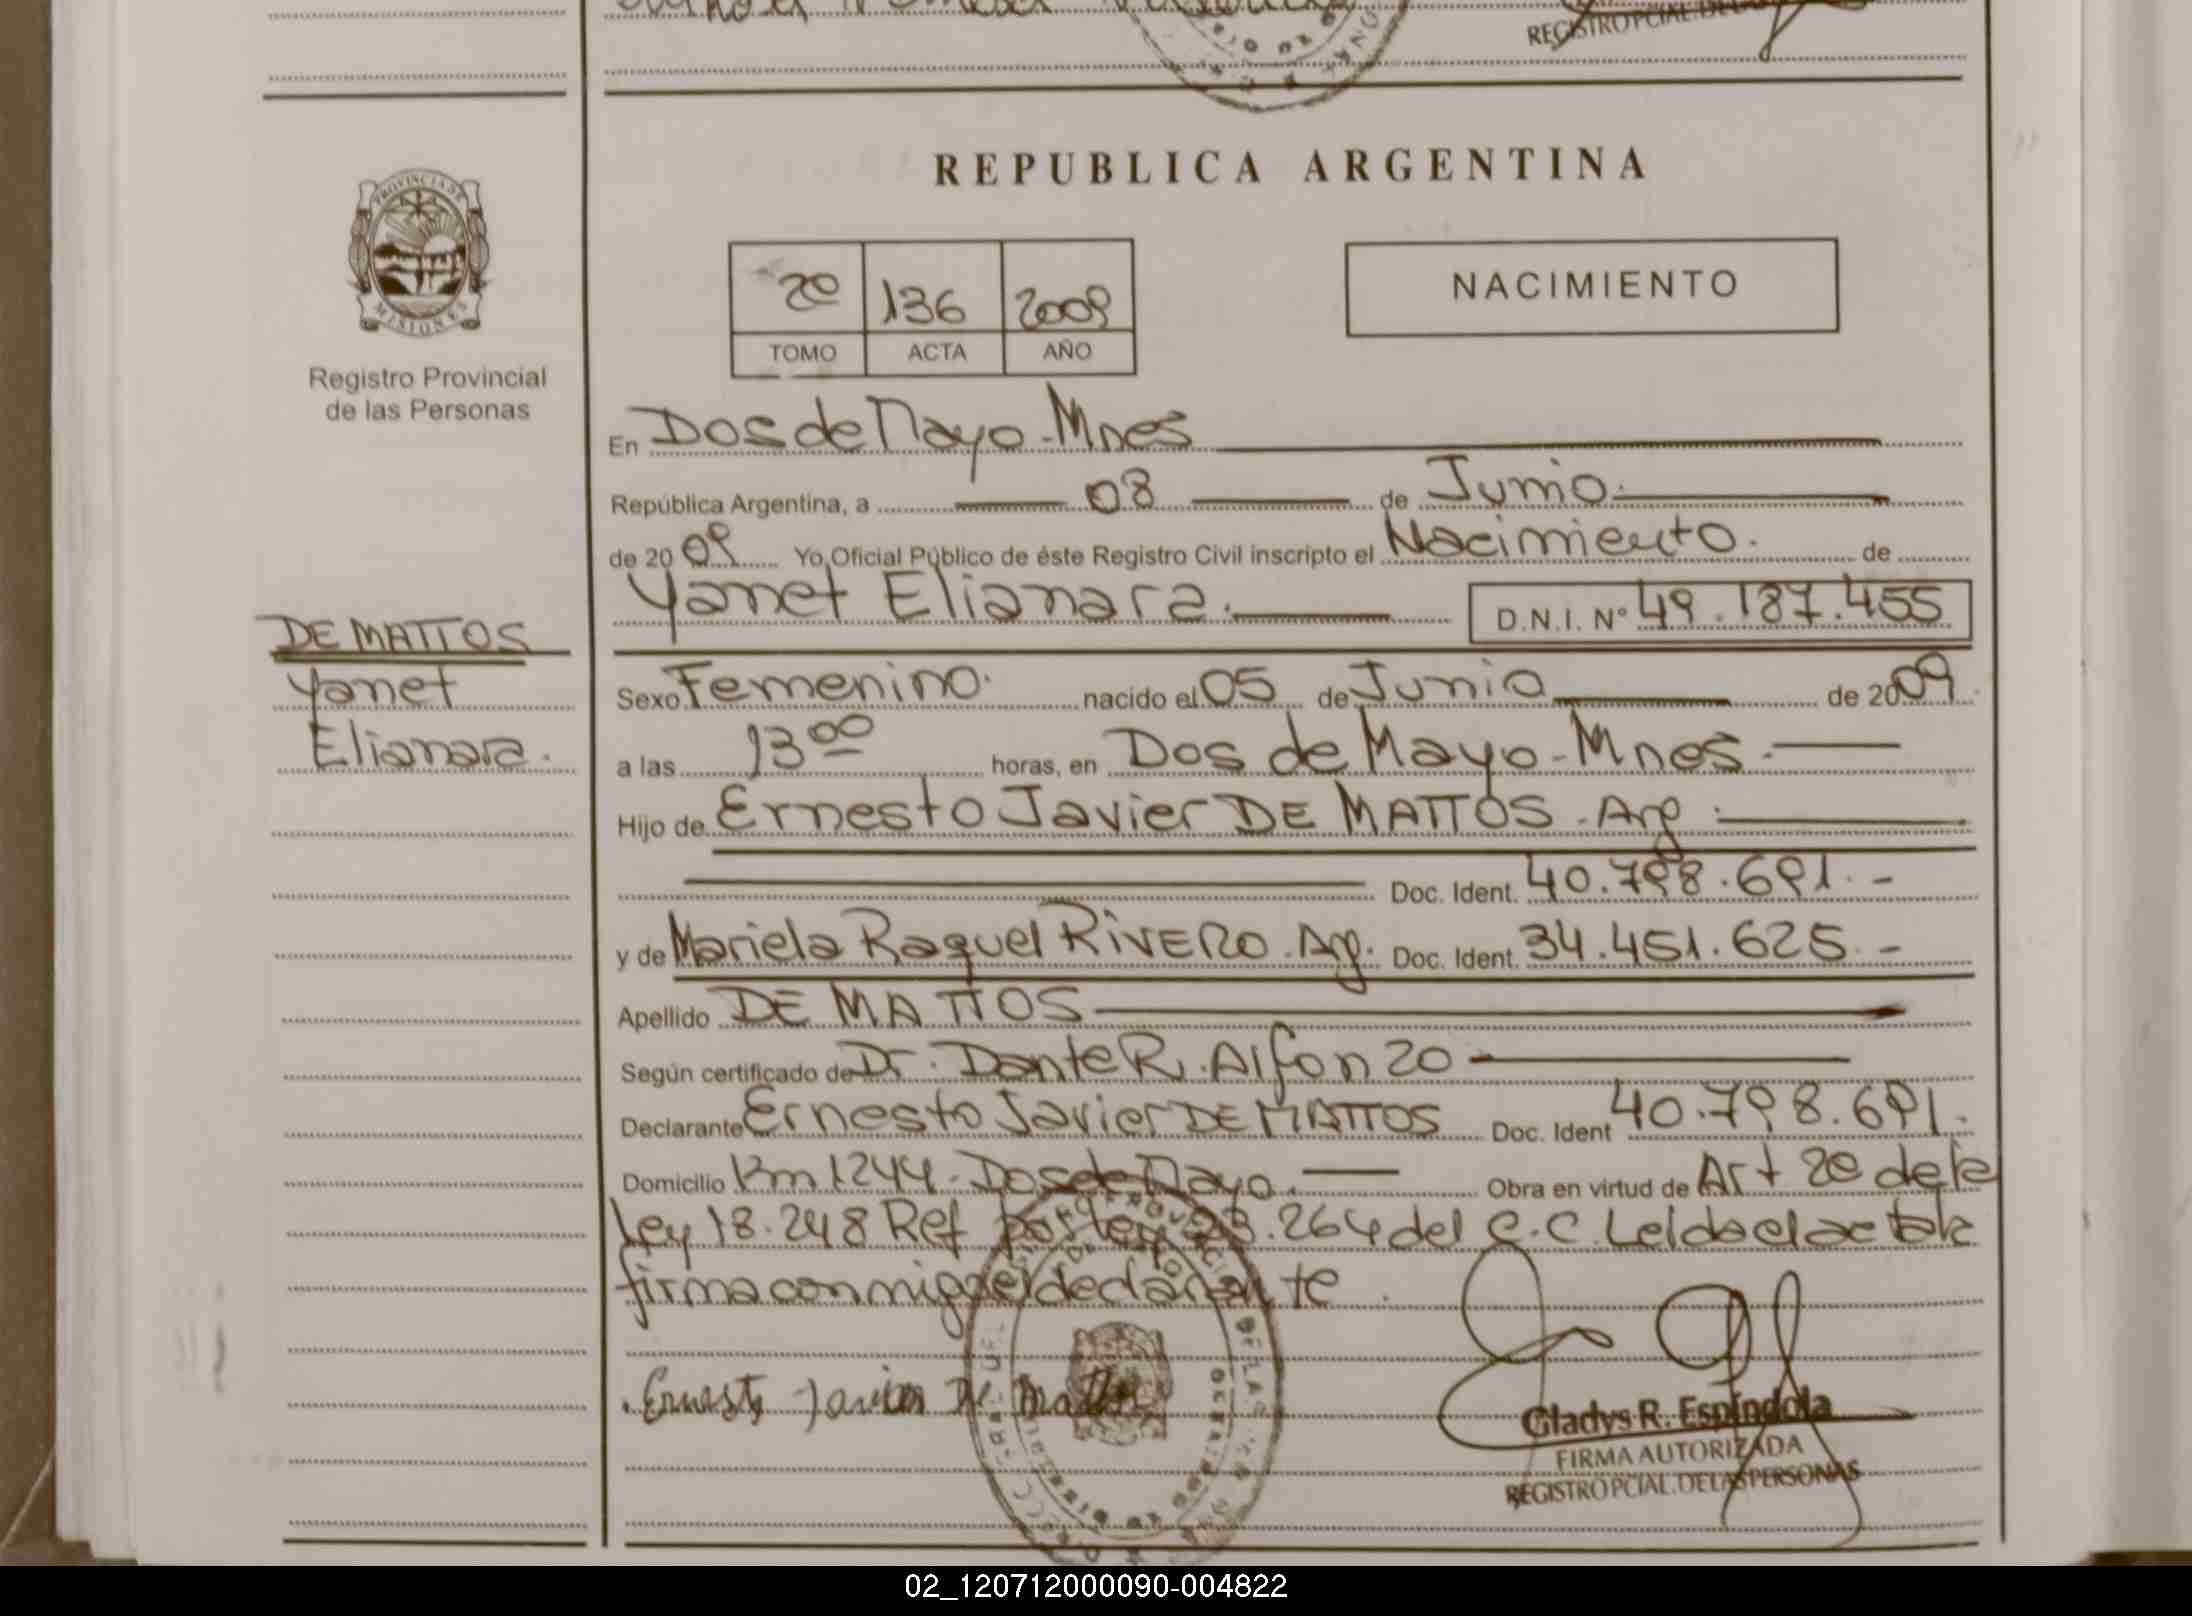 REGISTRO PCIAL. DE LAS
REPUBLICA ARGENTINA
PROVINCIA DE
MISIONES
Registro Provincial
de las Personas
2º 136 2009
TOMO ACTA AÑO
NACIMIENTO
En Dos de Mayo - Mnes
República Argentina, a 08 de Junio.
de 2009 Yo, Oficial Público de éste Registro Civil inscripto el Nacimiento. de
Yanet Elianara. D.N.I. Nº 49.187.455
DE MATTOS
Yanet
Elianara.
Sexo Femenino. nacido el 05 de Junio de 2009
a las 13 00 horas, en Dos de Mayo - Mnes.
Hijo de Ernesto Javier DE MATTOS - Arg.
Doc. Ident. 40.798.691.-
y de Mariela Raquel RIVERO. Arg. Doc. Ident. 34.451.625.-
Apellido DE MATTOS
Según certificado de Dr. Dante R. Alfonzo
Declarante Ernesto Javier DE MATTOS Doc. Ident 40.798.691.
Domicilio Km 1244 - Dos de Mayo. Obra en virtud de Art 2º de la
Ley 18.248 Ref por ley 23.264 del C.C. Leida el acta la
firma conmigo el declarante
Ernesto Javier De Mattos
Gladys R. Espíndola
FIRMA AUTORIZADA
REGISTRO PCIAL. DE LAS PERSONAS
02_120712000090-004822